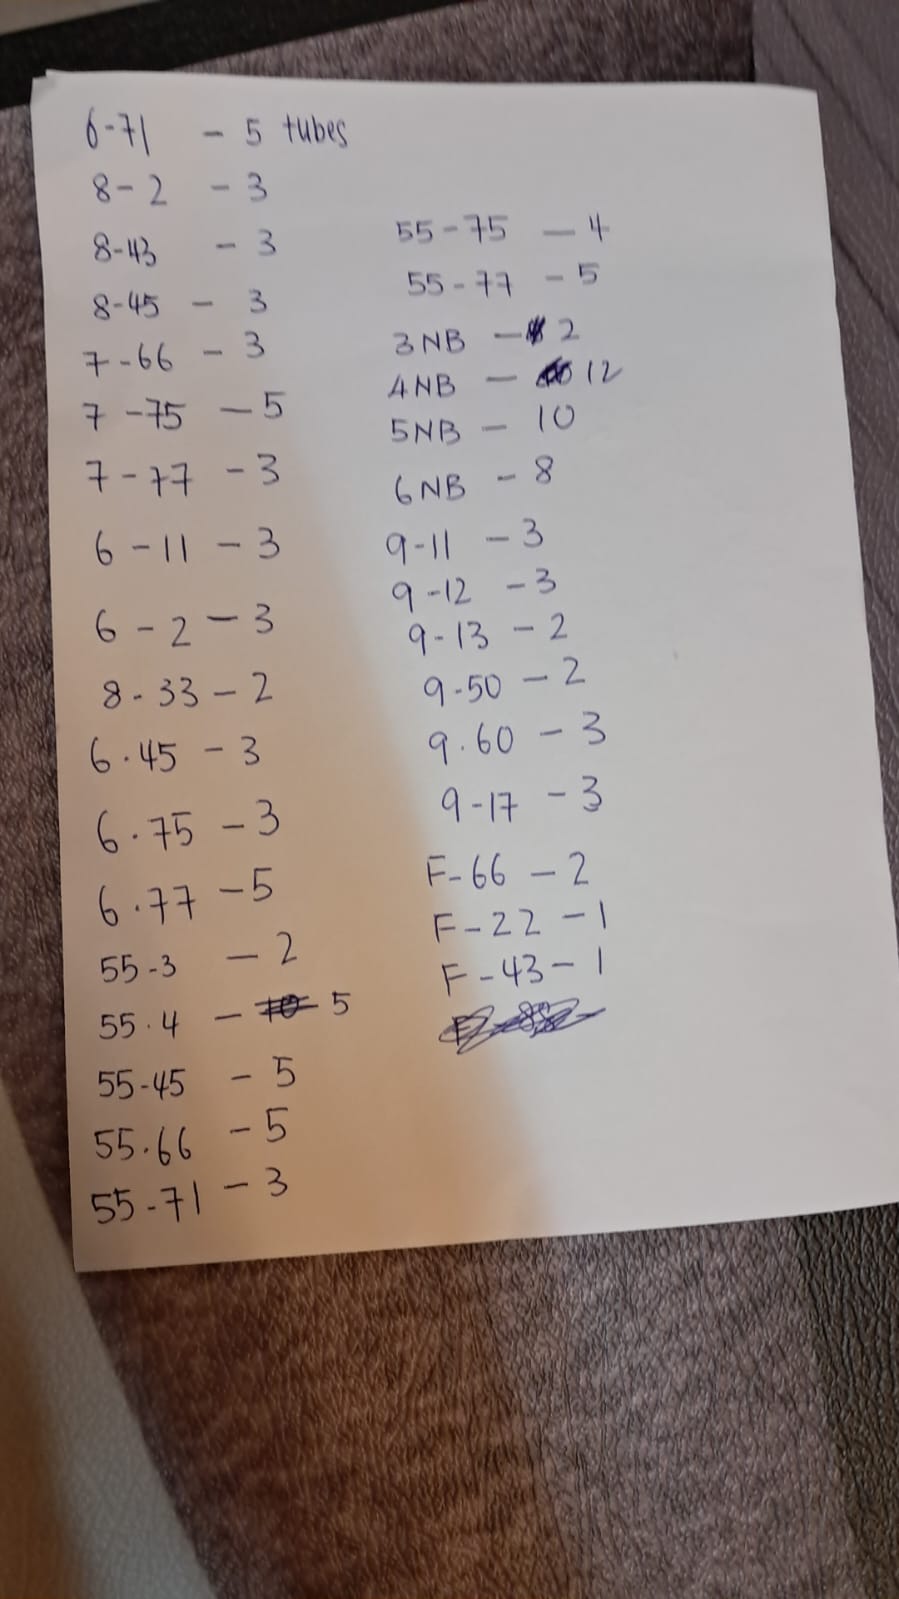 6-71 - 5 tubes
8-2 - 3
8-43 - 3
8-45 - 3
7-66 - 3
7-75 - 5
7-77 - 3
6-11 - 3
6-2 - 3
8-33 - 2
6.45 - 3
6.75 - 3
6.77 - 5
55-3 - 2
55.4 - 5
55-45 - 5
55.66 - 5
55-71 - 3
55-75 - 4
55-77 - 5
3NB - 2
4NB - 12
5NB - 10
6NB - 8
9-11 - 3
9-12 - 3
9-13 - 2
9-50 - 2
9.60 - 3
9-17 - 3
F-66 - 2
F-22 - 1
F-43 - 1